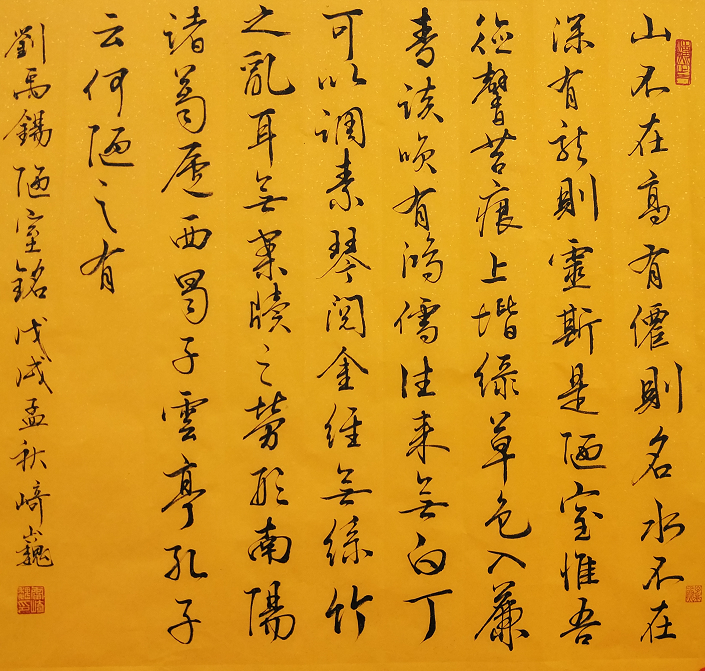 山不在高有僊則名水不在
深有龍則靈斯是陋室惟吾
德馨苔痕上堦綠草色入簾
青談咲有鴻儒往来無白丁
可以調素琴閲金經無絲竹
之亂耳無案牘之勞形南陽
諸葛廬西蜀子雲亭孔子
云何陋之有
劉禹錫陋室銘戊戌孟秋崎巍